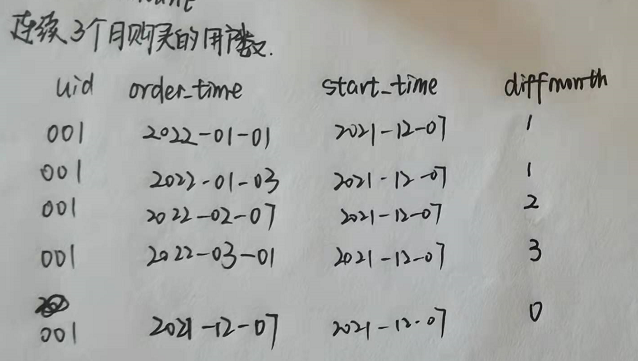 连续3个月购买的用户数.
uid order_time start_time diffmonth
001 2022-01-01 2021-12-07 1
001 2022-01-03 2021-12-07 1
001 2022-02-07 2021-12-07 2
001 2022-03-01 2021-12-07 3
001 2021-12-07 2021-12-07 0